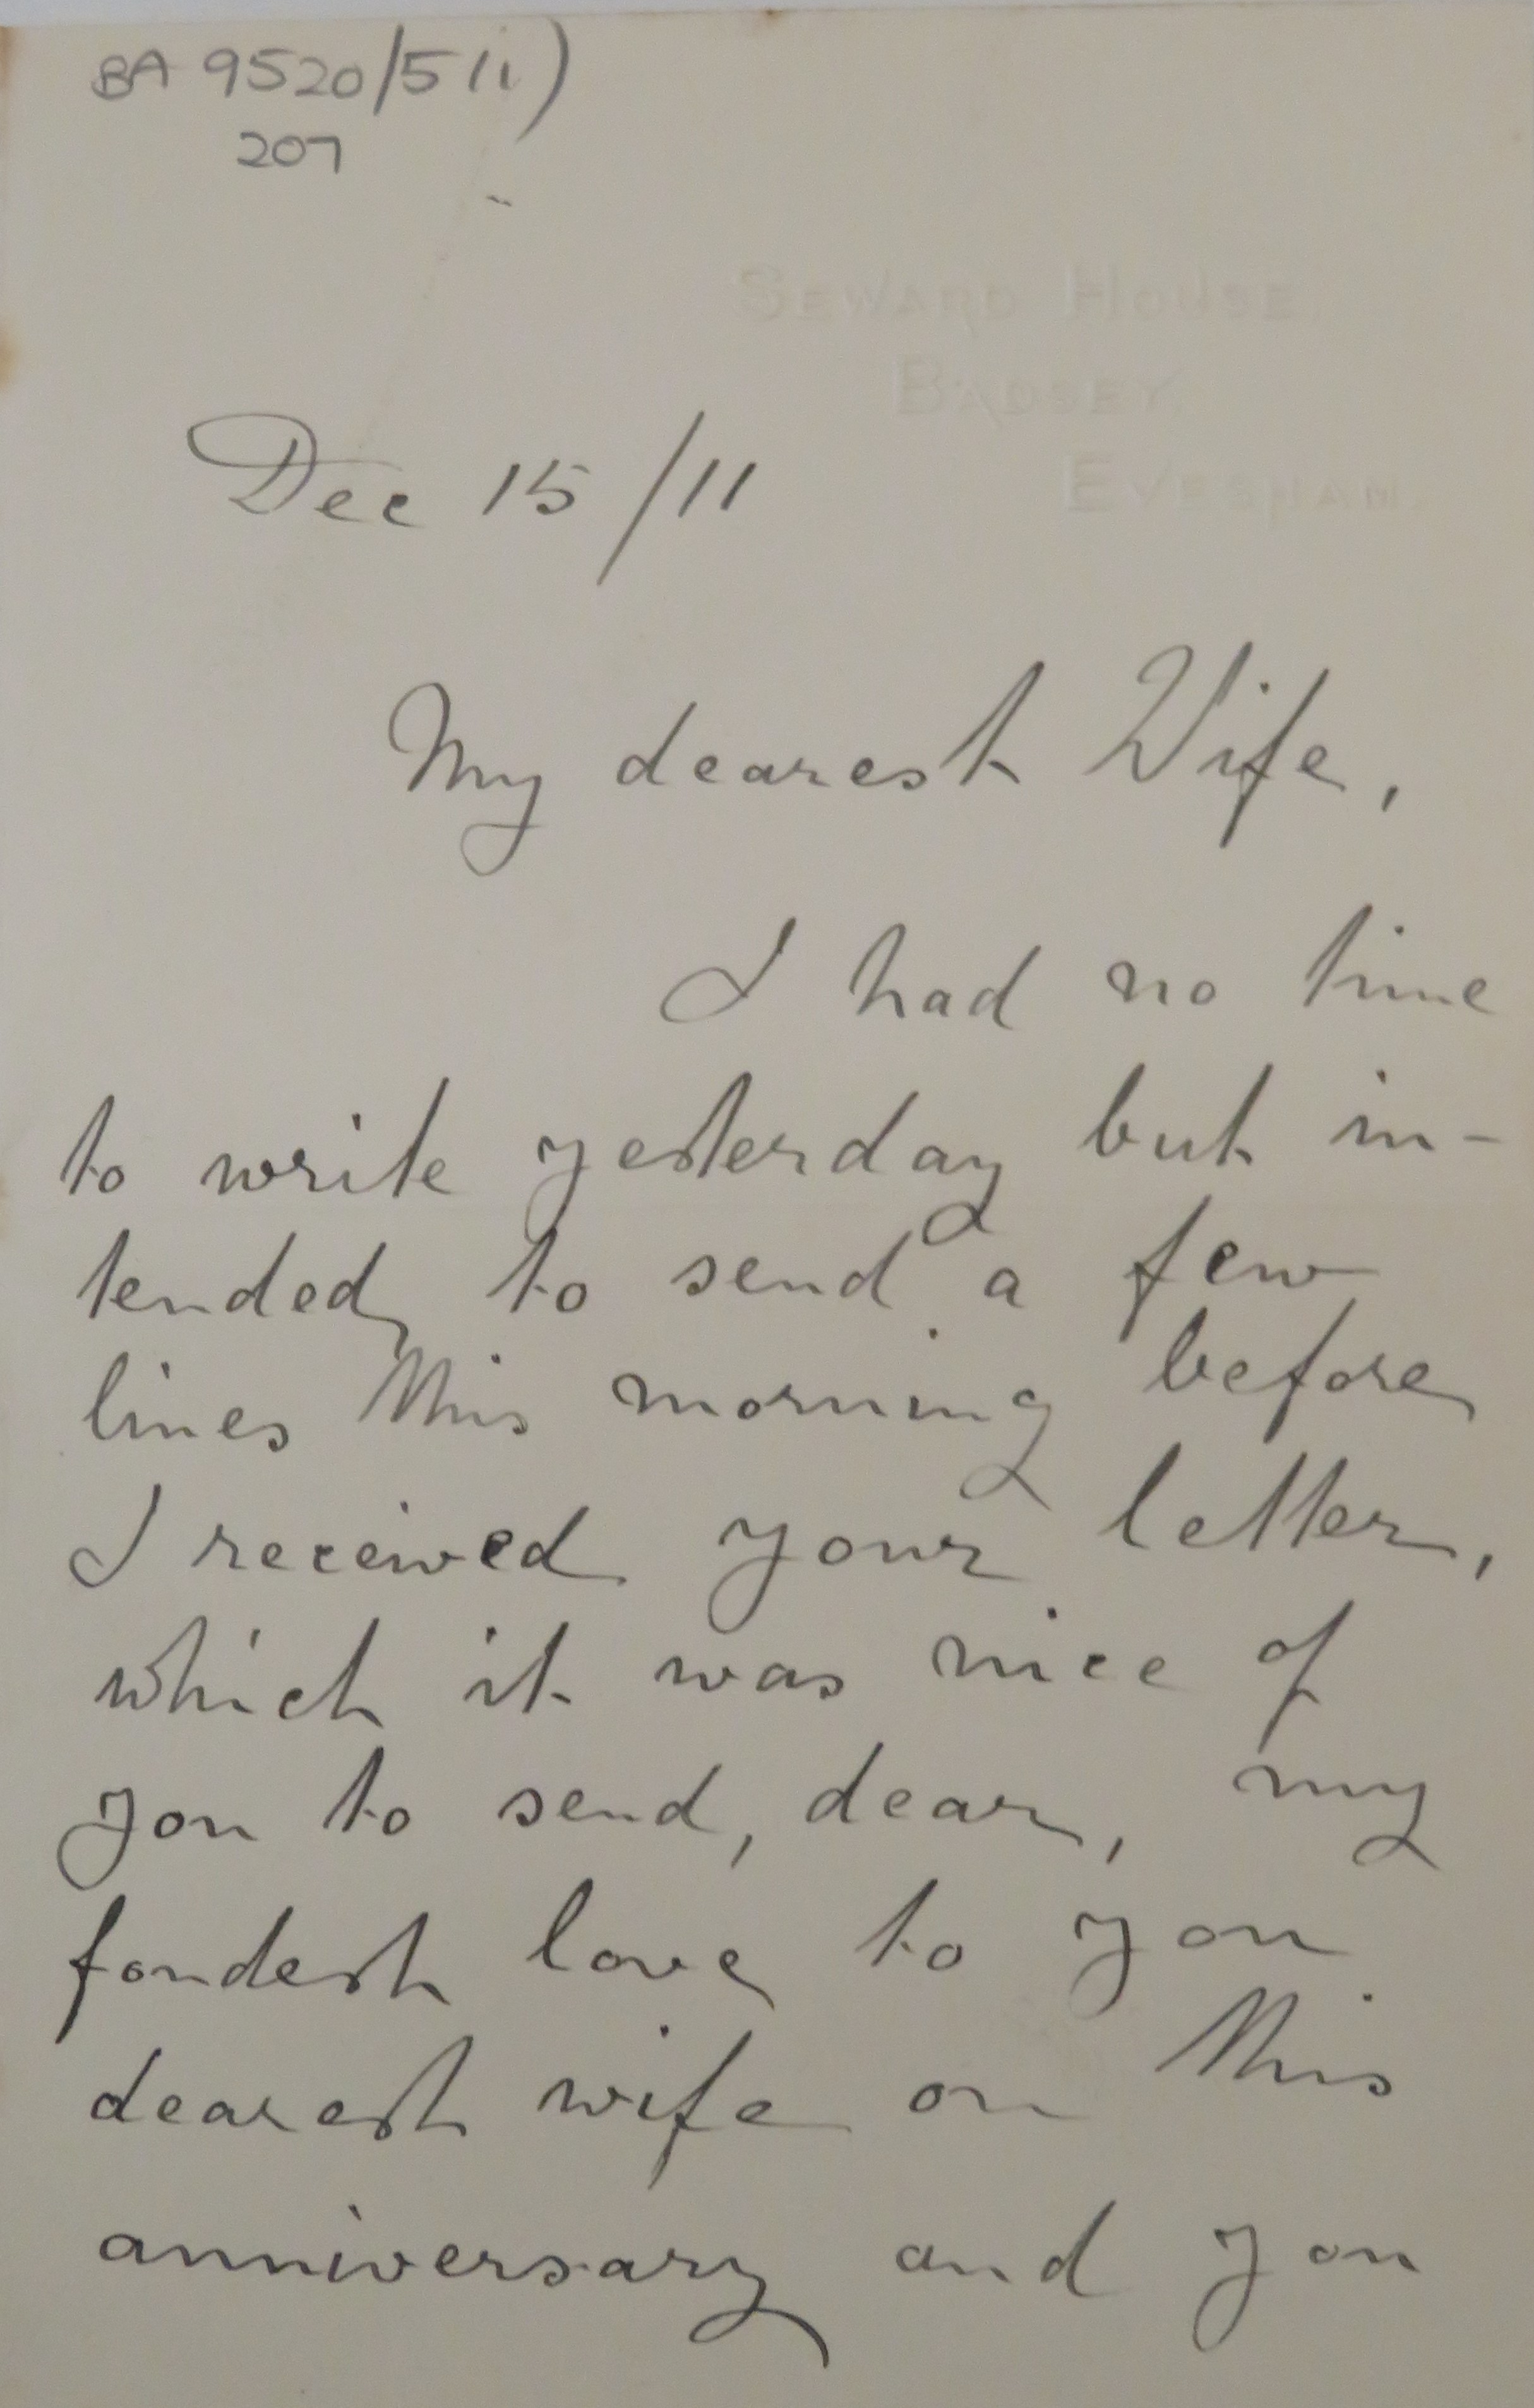 BA 9520/5(i)
207
SEWARD HOUSE,
BADSEY,
EVESHAM.
Dec 15/11
My dearest Wife,
I had no time
to write yesterday but in-
tended to send a few
lines this morning before
I received your letter,
which it was nice of
you to send, dear, my
fondest love to you
dearest wife on this
anniversary and you